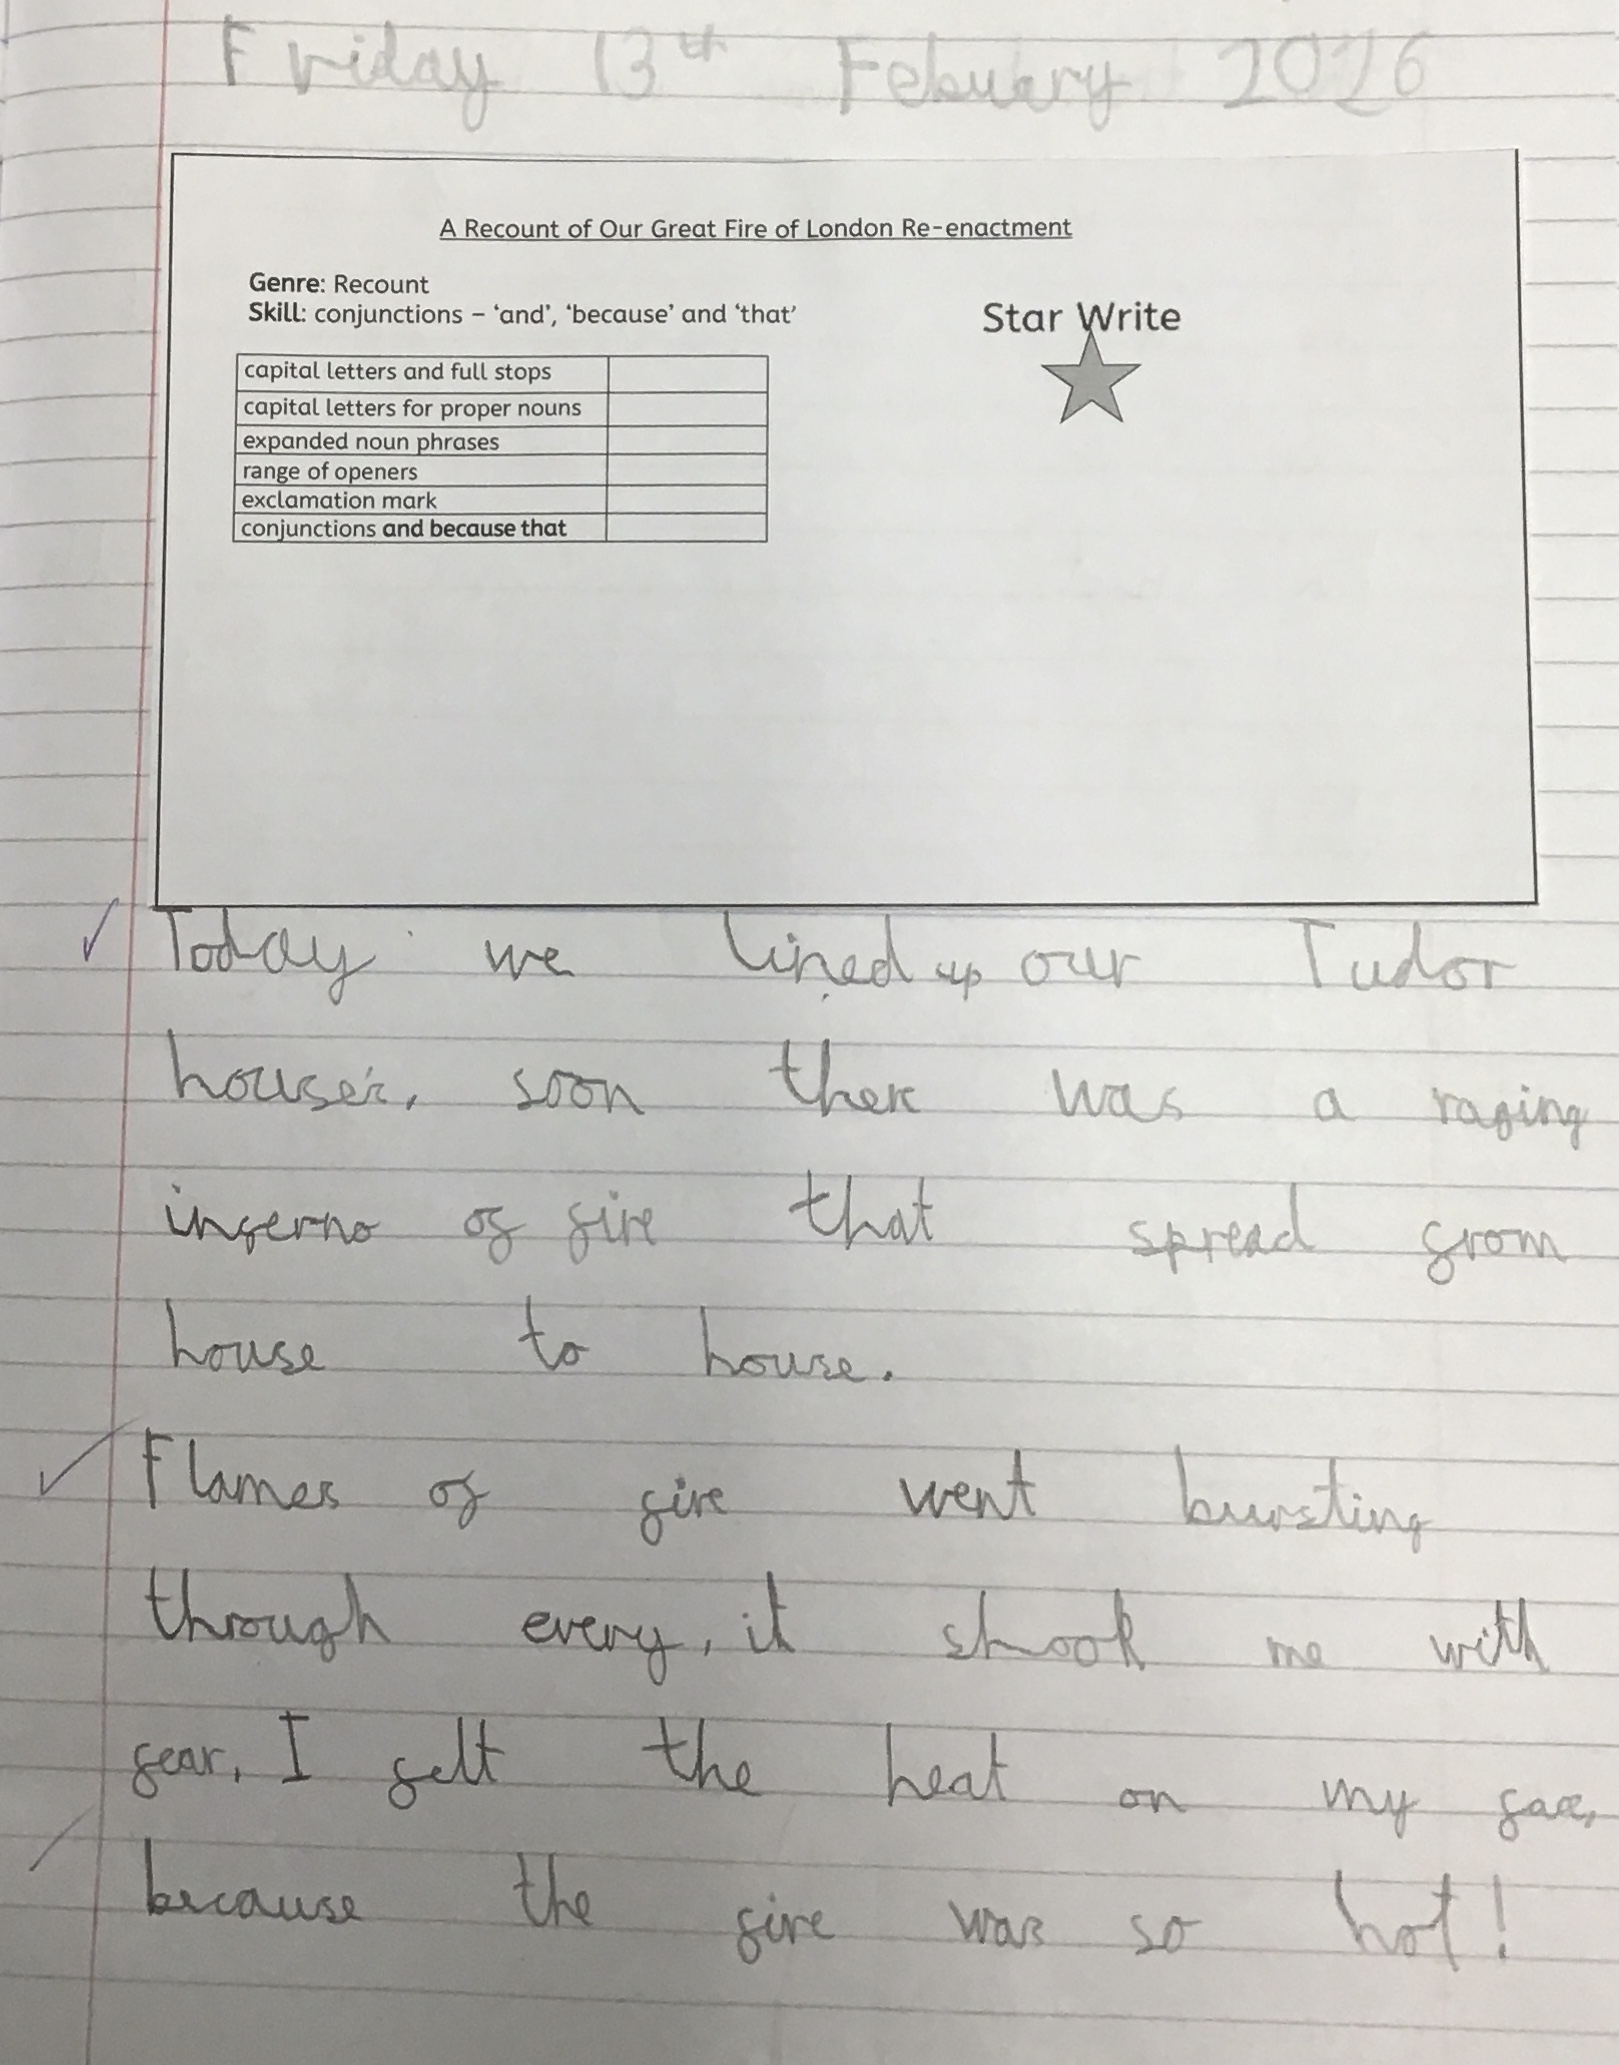 Friday 13th Febuary 2026
A Recount of Our Great Fire of London Re-enactment
Genre: Recount
Skill: conjunctions – ‘and’, ‘because’ and ‘that’
Star Write
capital letters and full stops
capital letters for proper nouns
expanded noun phrases
range of openers
exclamation mark
conjunctions and because that
Today we lined up our Tudor
houses, soon there was a raging
inferno of fire that spread from
house to house.
Flames of fire went bursting
through every, it shook me with
fear, I felt the heat on my face,
because the fire was so hot!